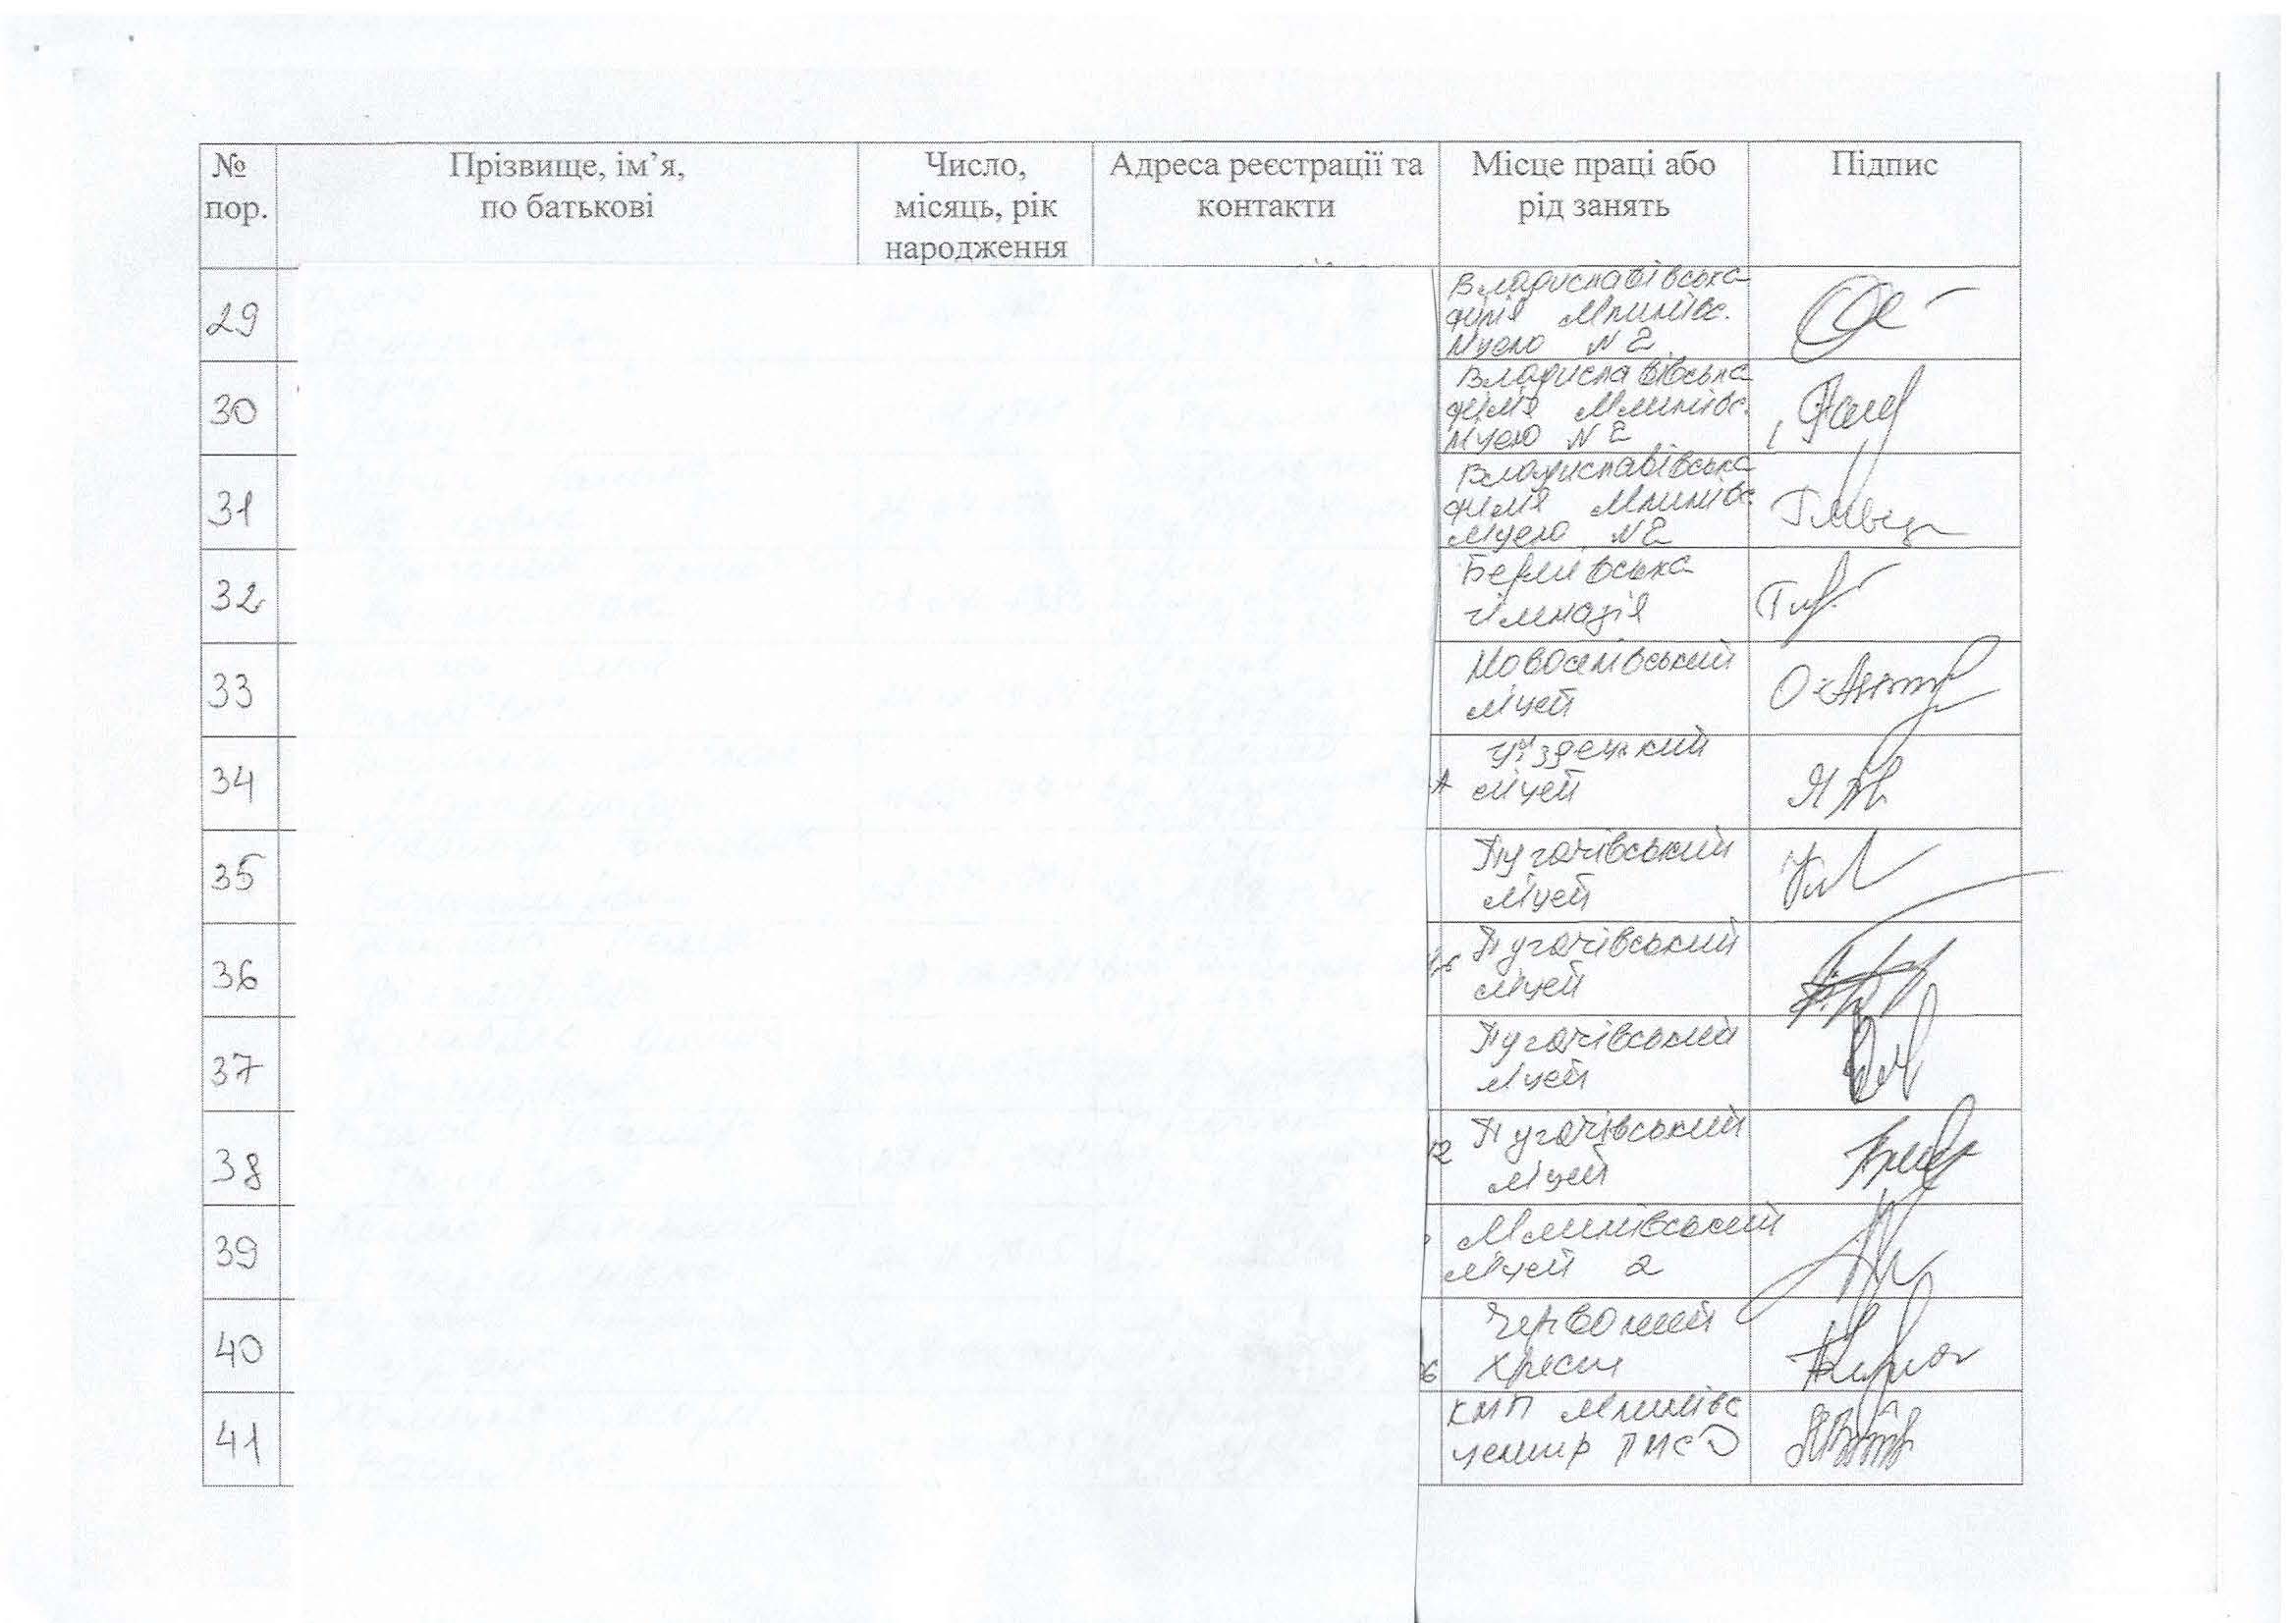 № пор.
Прізвище, ім’я,
по батькові
Число,
місяць, рік
народження
Адреса реєстрації та
контакти
Місце праці або
рід занять
Підпис
29
Владиславівська
філія Млинівс.
ліцею № 2
30
Владиславівська
філія Млинівс.
ліцею № 2
31
Владиславівська
філія Млинівс.
ліцею № 2
32
гімназія
33
Новоселівський
ліцей
34
ліцей
35
Пугачівський
ліцей
36
Пугачівський
ліцей
37
Пугачівський
ліцей
38
Пугачівський
ліцей
39
Млинівський
ліцей 2
40
Червоний
Хрест
41
КНП Млинівс
центр ПМСД